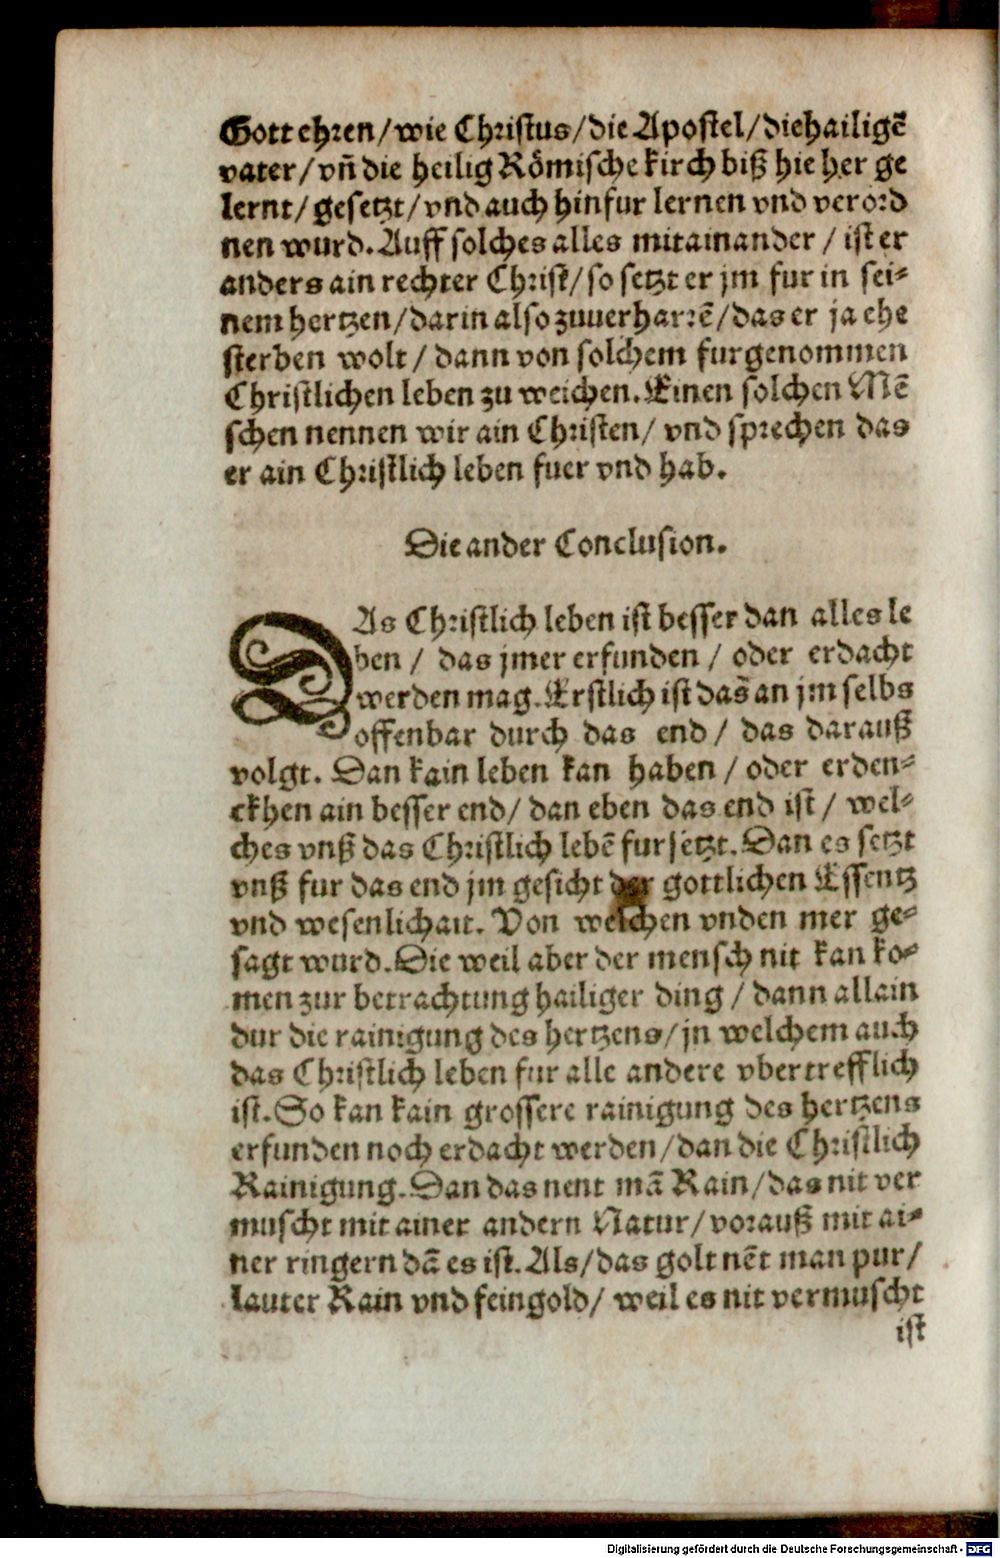 Gott ehren/wie Christus/die Apostel/die hailigē
vater/vñ die heilig Römische kirch biß hie her ge
lernt/gesetzt/vnd auch hinfur lernen vnd verord
nen wurd. Auff solches alles mitainander / ist er
anders ain rechter Christ/so setzt er jm fur in sei⸗
nem hertzen/darin also zuuerharrē/das er ja ehe
sterben wolt / dann von solchem furgenommen
Christlichen leben zu weichen. Einen solchen Mē
schen nennen wir ain Christen/ vnd sprechen das
er ain Christlich leben fuer vnd hab.
Die ander Conclusion.
DAs Christlich leben ist besser dan alles le
ben / das jmer erfunden / oder erdacht
werden mag. Erstlich ist das an jm selbs
offenbar durch das end / das darauß
volgt. Dan kain leben kan haben / oder erden⸗
ckhen ain besser end/ dan eben das end ist / wel⸗
ches vnß das Christlich lebē fursetzt. Dan es setzt
vnß fur das end jm gesicht der gottlichen Essentz
vnd wesenlichait. Von welchen vnden mer ge⸗
sagt wurd. Die weil aber der mensch nit kan ko⸗
men zur betrachtung hailiger ding / dann allain
dur die rainigung des hertzens/jn welchem auch
das Christlich leben fur alle andere vbertrefflich
ist. So kan kain grossere rainigung des hertzens
erfunden noch erdacht werden/dan die Christlich
Rainigung. Dan das nent mā Rain/das nit ver
muscht mit ainer andern Natur/vorauß mit ai⸗
ner ringern dā es ist. Als/das golt nēt man pur/
lauter Rain vnd feingold/ weil es nit vermuscht
ist
Digitalisierung gefördert durch die Deutsche Forschungsgemeinschaft - DFG